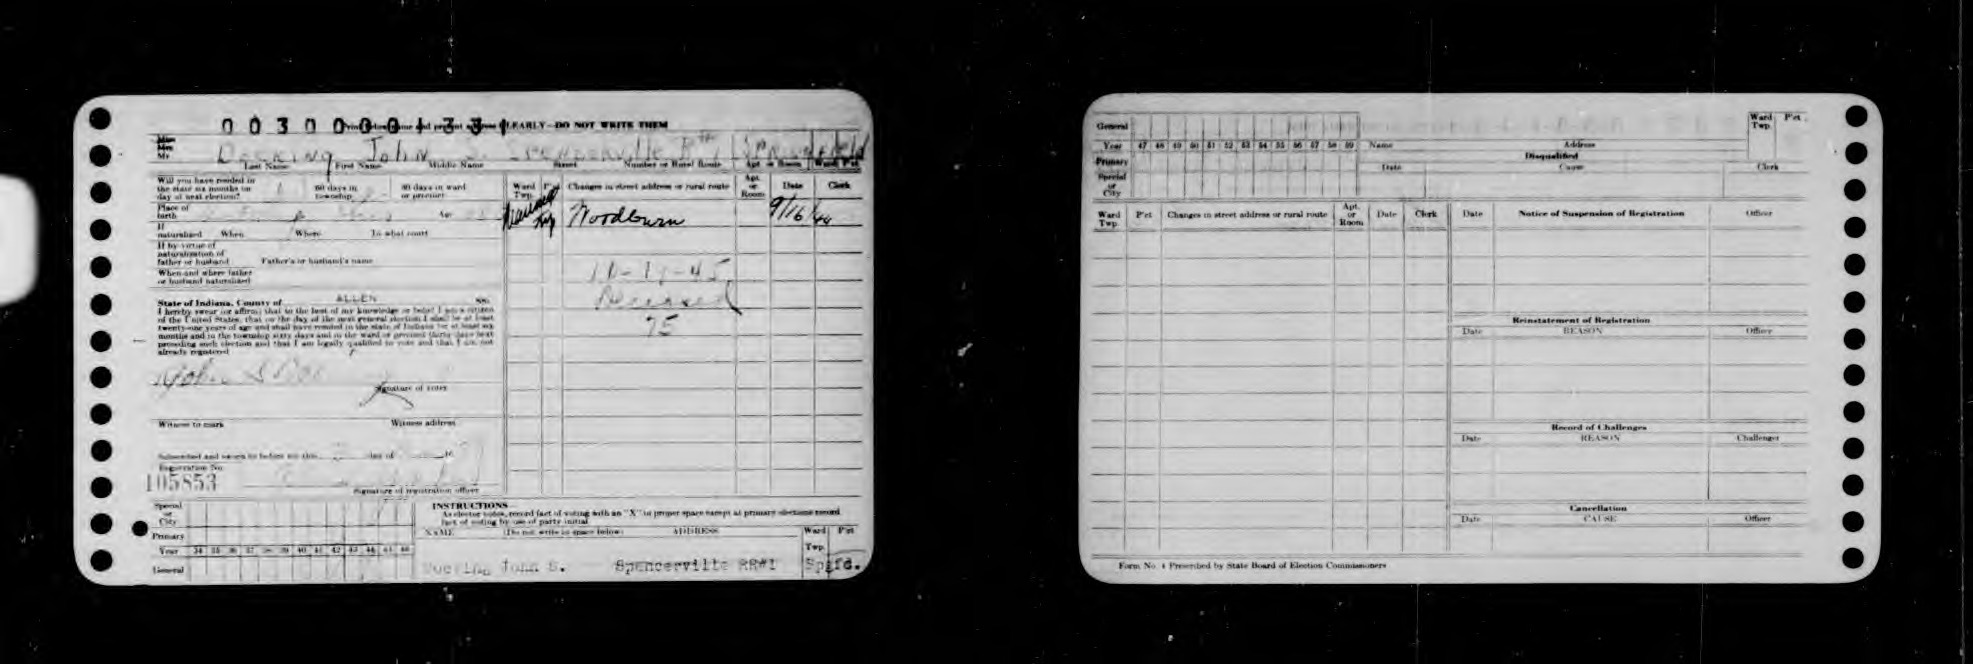 0030000133
Print below name and present address CLEARLY—DO NOT WRITE THEM
Miss
Mrs
Mr
John S. Spencerville Rt 1 Springfield
Last Name First Name Middle Name Street Number or Rural Route Apt. or Room Ward P'ct
Will you have resided in
the state six months on
day of next election? 60 days in
township 30 days in ward
or precinct
Place of
birth Age
If
naturalized When Where In what court
If by virtue of
naturalization of
father or husband Father's or husband's name
When and where father
or husband naturalized
State of Indiana, County of ALLEN SS:
I hereby swear (or affirm) that to the best of my knowledge or belief I am a citizen
of the United States, that on the day of the next general election I shall be at least
twenty-one years of age and shall have resided in the state of Indiana for at least six
months and in the township sixty days and in the ward or precinct thirty days next
preceding such election and that I am legally qualified to vote and that I am not
already registered
John S
Signature of voter
Witness to mark Witness address
Subscribed and sworn to before me this day of 19
Registration No.
105853
Signature of registration officer
Ward
Twp. P'ct Changes in street address or rural route Apt.
or
Room Date Clerk
Twp Woodburn 9/16/44
10-11-45
Deceased
75
Special
or
City
Primary
Year 34 35 36 37 38 39 40 41 42 43 44 45 46
General
INSTRUCTIONS—
As elector votes, record fact of voting with an "X" in proper space except at primary elections record
fact of voting by use of party initial
NAME (Do not write in space below) ADDRESS Ward P'ct
Twp.
John S. Spencerville RR#1 Spgfd.
General
Year 47 48 49 50 51 52 53 54 55 56 57 58 59 Name Address
Ward
Twp. P'ct
Disqualified
Primary
Special
or
City
Date Cause Clerk
Ward
Twp. P'ct Changes in street address or rural route Apt.
or
Room Date Clerk
Date Notice of Suspension of Registration Officer
Reinstatement of Registration
Date REASON Officer
Record of Challenges
Date REASON Challenger
Cancellation
Date CAUSE Officer
Form No. 4 Prescribed by State Board of Election Commissioners